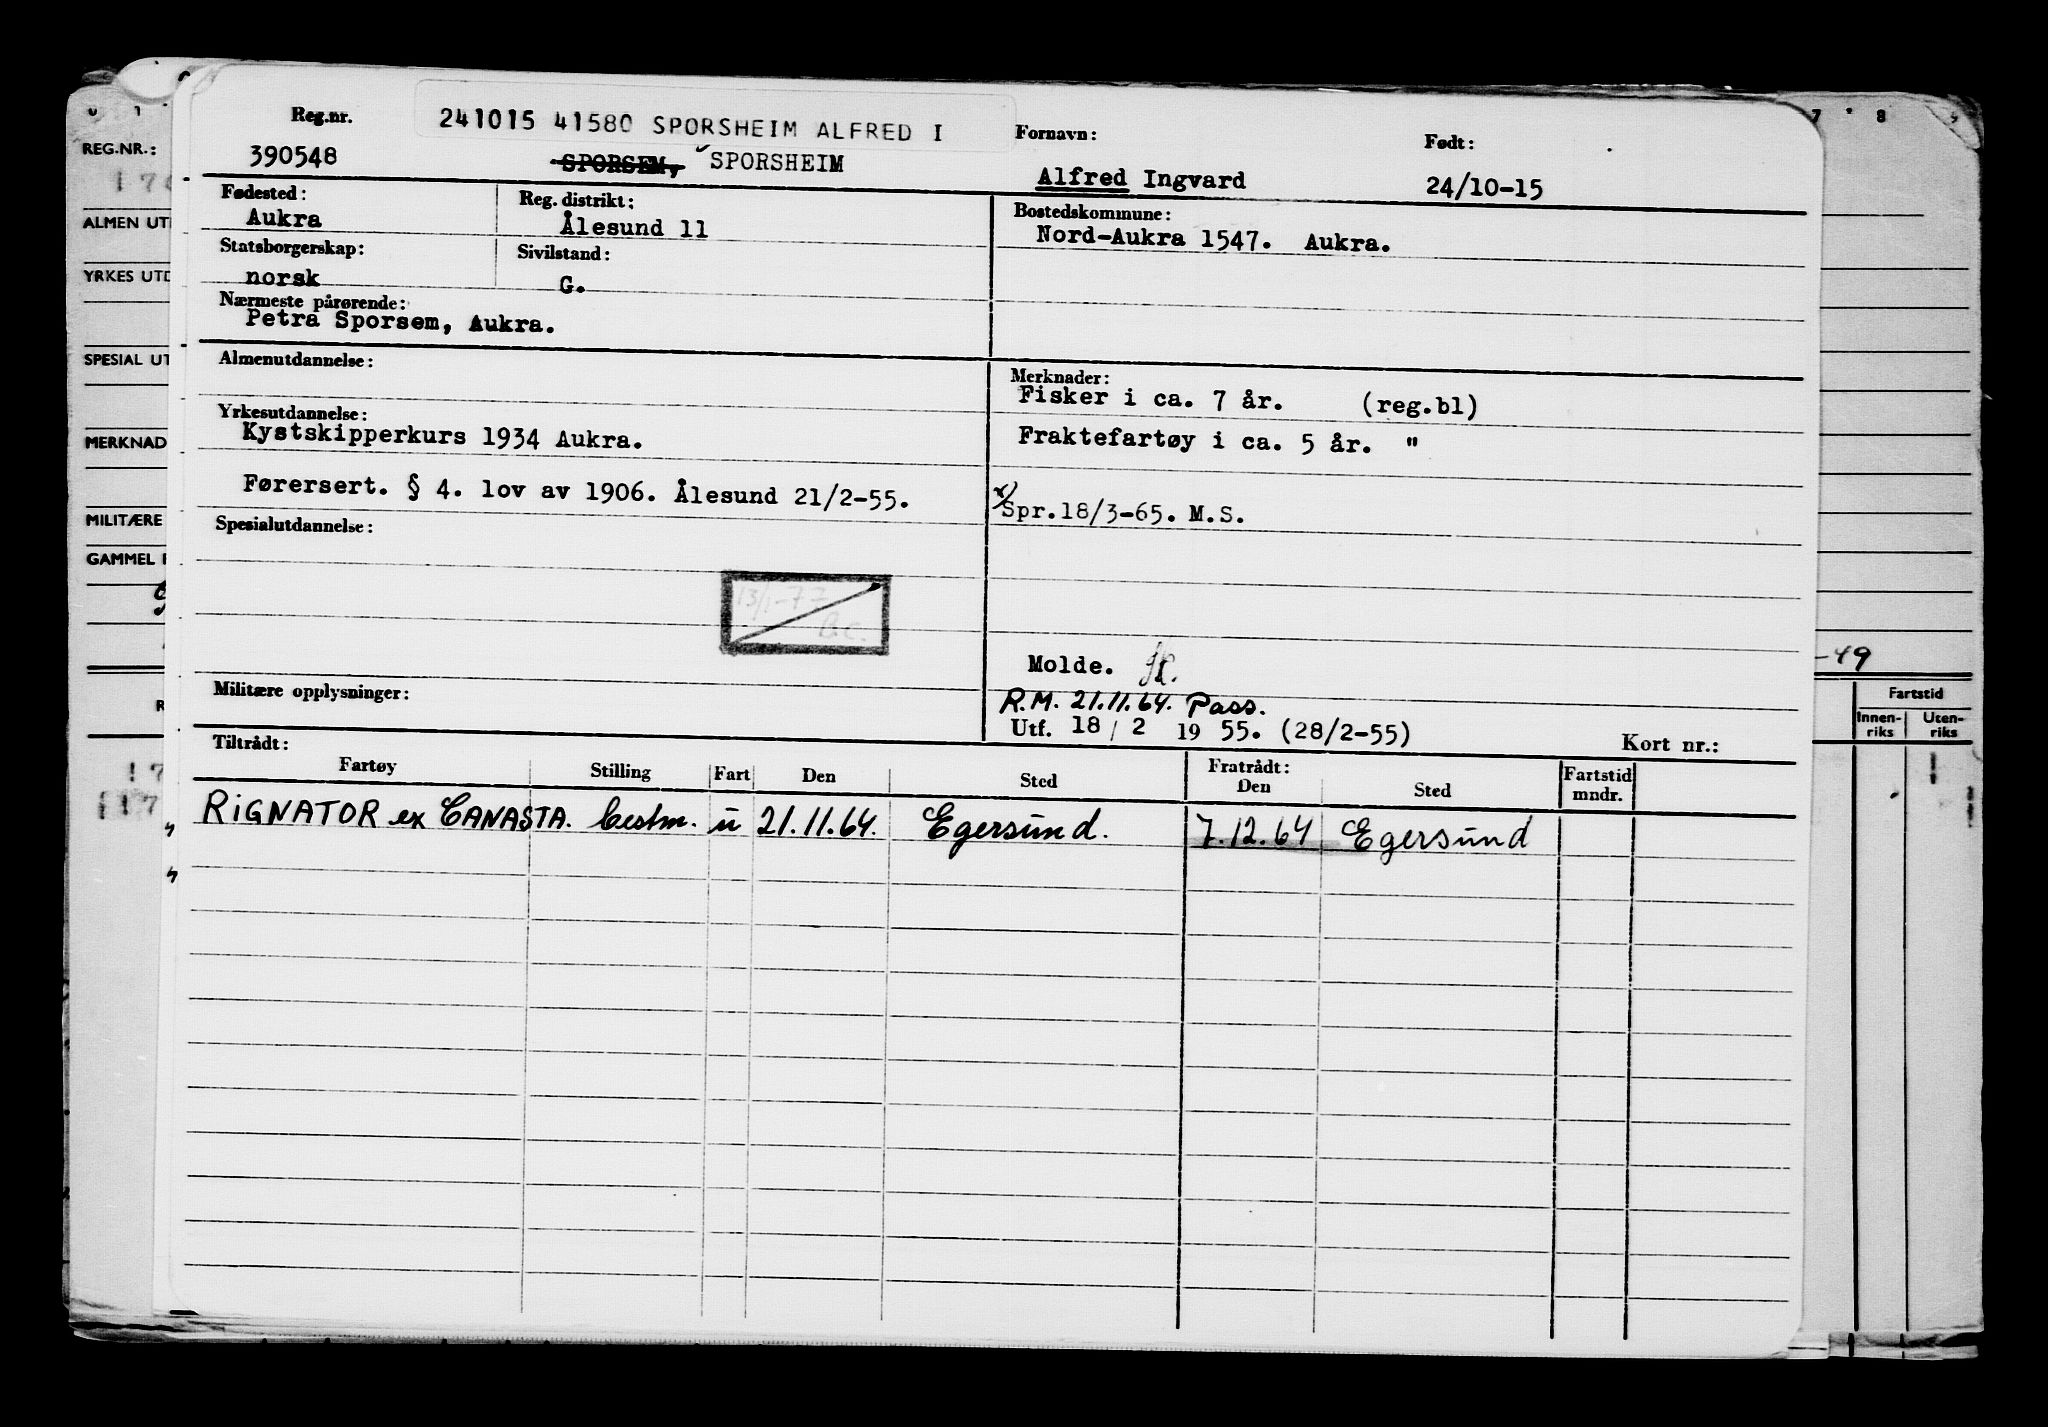 Reg.nr.
241015 41580 SPORSHEIM ALFRED I
Fornavn:
Født:
390548
SPORSEM, SPORSHEIM
Alfred Ingvard
24/10-15
Fødested:
Aukra
Reg. distrikt:
Ålesund 11
Bostedskommune:
Nord-Aukra 1547. Aukra.
Statsborgerskap:
norsk
Sivilstand:
G.
Nærmeste pårørende:
Petra Sporsem, Aukra.
Almenutdannelse:
Merknader:
Fisker i ca. 7 år. (reg.bl)
Yrkesutdannelse:
Kystskipperkurs 1934 Aukra.
Fraktefartøy i ca. 5 år. "
Førersert. § 4. lov av 1906. Ålesund 21/2-55.
x) Spr.18/3-65. M.S.
Spesialutdannelse:
13/1-77
B.C.
Molde.
Militære opplysninger:
R.M. 21.11.64. Pass.
Utf. 18/2 1955. (28/2-55)
Kort nr.:
Tiltrådt:
Fratrådt:
Fartøy Stilling Fart Den Sted Den Sted Fartstid mndr.
RIGNATOR ex CANASTA. bestm. u 21.11.64. Egersund. 7.12.64 Egersund
REG.NR.:
ALMEN UT
YRKES UTD
SPESIAL UT
MERKNAD
MILITÆRE
GAMMEL
7 8 9
-49
Fartstid
Innen-riks
Uten-riks